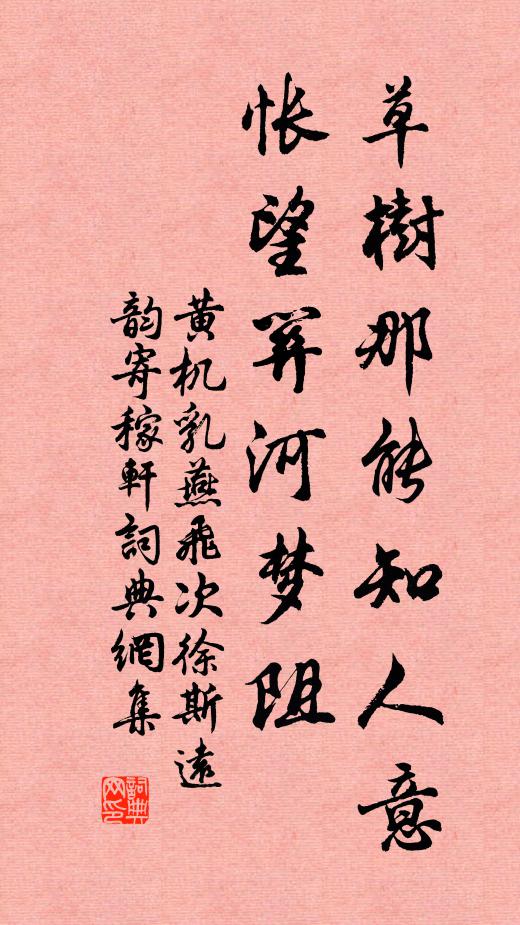 草樹那能知人意
怅望关河梦阻
黄机乳燕飛次徐斯遠
韵寄稼軒詞典網集
詞典
网印